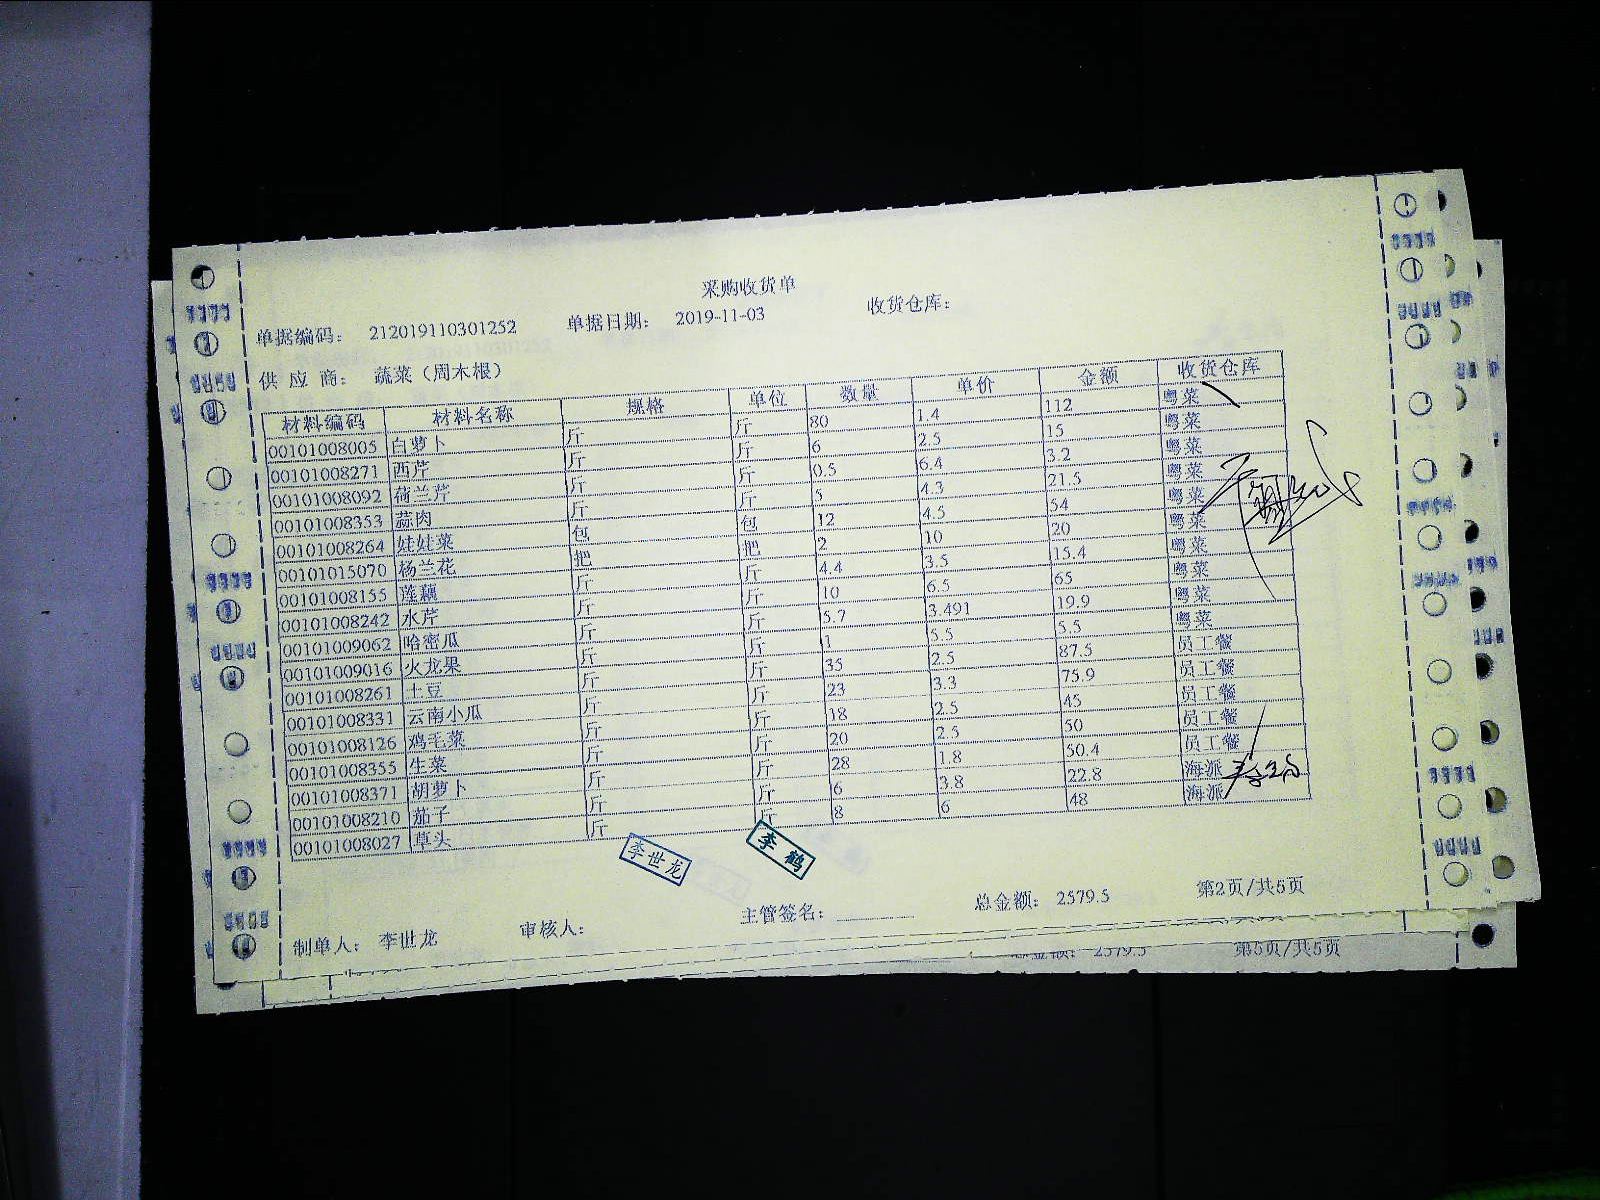 采购收货单
单据编码： 212019110301252 单据日期： 2019-11-03 收货仓库：
供 应 商： 蔬菜（周木根）
材料编码 材料名称 规格 单位 数量 单价 金额 收货仓库
00101008005 白萝卜 斤 斤 80 1.4 112 粤菜
00101008271 西芹 斤 斤 6 2.5 15 粤菜
00101008092 荷兰芹 斤 斤 0.5 6.4 3.2 粤菜
00101008353 蒜肉 斤 斤 5 4.3 21.5 粤菜
00101008264 娃娃菜 包 包 12 4.5 54 粤菜
00101015070 杨兰花 把 把 2 10 20 粤菜
00101008155 莲藕 斤 斤 4.4 3.5 15.4 粤菜
00101008242 水芹 斤 斤 10 6.5 65 粤菜
00101009062 哈密瓜 斤 斤 5.7 3.491 19.9 粤菜
00101009016 火龙果 斤 斤 1 5.5 5.5 粤菜
00101008261 土豆 斤 斤 35 2.5 87.5 员工餐
00101008331 云南小瓜 斤 斤 23 3.3 75.9 员工餐
00101008126 鸡毛菜 斤 斤 18 2.5 45 员工餐
00101008355 生菜 斤 斤 20 2.5 50 员工餐
00101008371 胡萝卜 斤 斤 28 1.8 50.4 员工餐
00101008210 茄子 斤 斤 6 3.8 22.8 海派
00101008027 草头 斤 斤 8 6 48 海派
李世龙 李鹤
制单人： 李世龙 审核人： 主管签名： 总金额： 2579.5 第2页/共5页
总金额： 2579.5 第5页/共5页